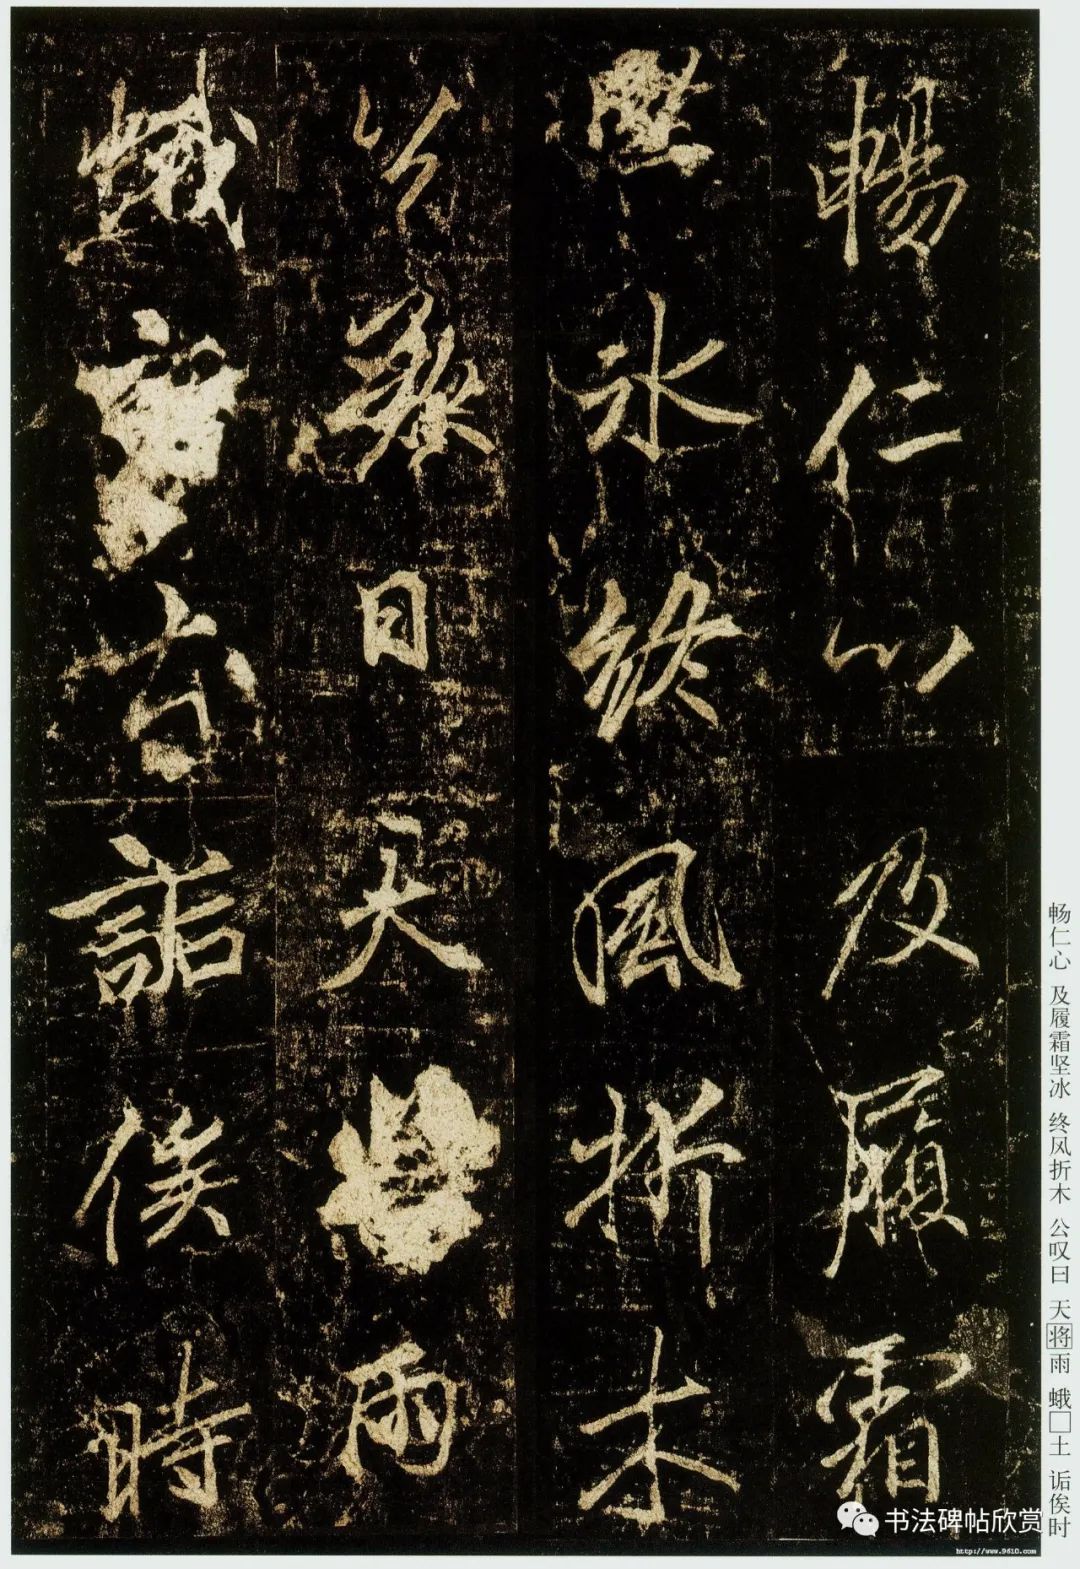 暢仁心及履霜
堅冰終風折木
公歎曰天雨
蛾土詬俟時
畅仁心 及履霜坚冰 终风折木 公叹曰 天将雨 蛾□土 诟俟时
书法碑帖欣赏
http://www.9610.com